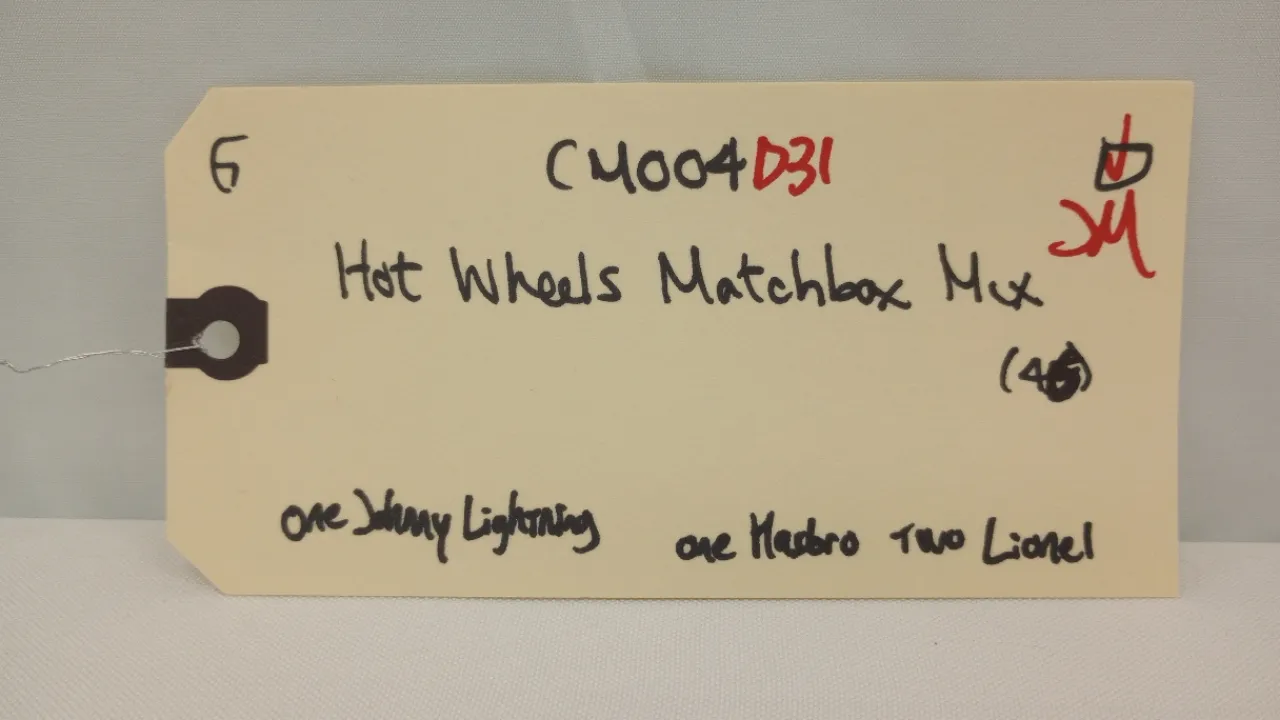 G CM004D31
JM
Hot Wheels Matchbox Mix
one Johnny Lightning one Hasbro Two Lionel